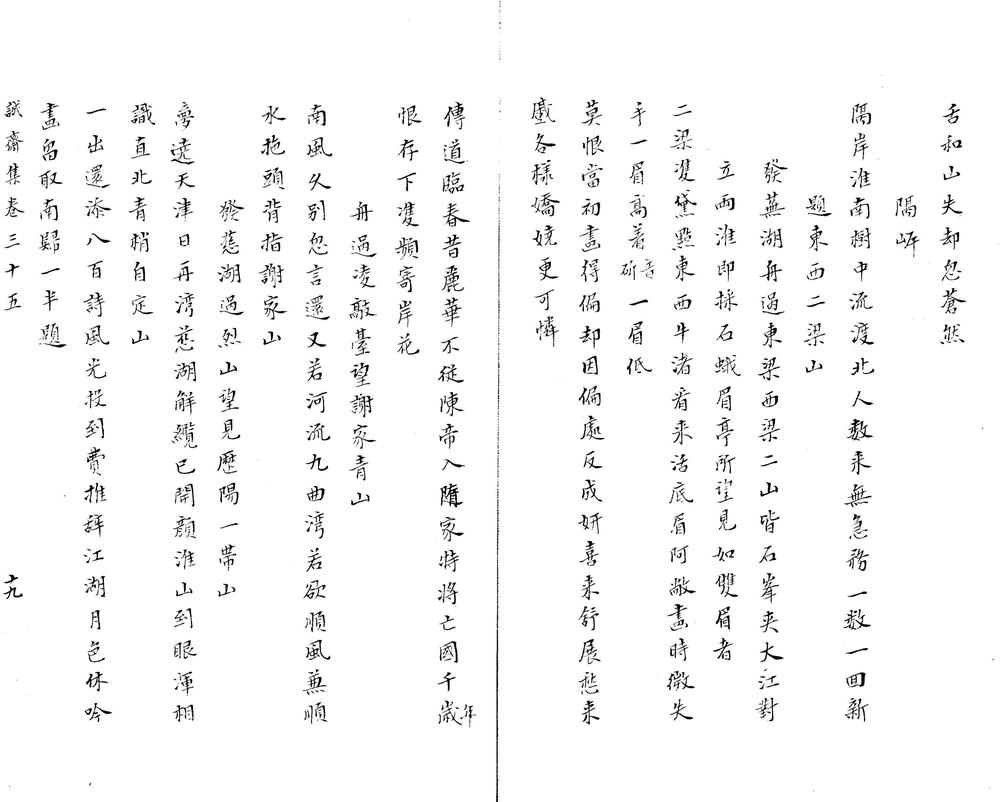 舌和山失却忽蒼然
隔岸
隔岸淮南樹中流渡北人數来無急務一數一回新
題東西二梁山
發蕪湖舟過東梁西梁二山皆石峯夾大江對
立両淮即採石蛾眉亭所望見如雙眉者
二梁雙黛點東西牛渚看来活底眉阿敞畫時微失
手一眉高着斫音一眉低
莫恨當初畫得偏却因偏處反成妍喜来舒展愁来
慼各樣嬌嬈更可憐
傳道臨春昔麗華不從陳帝入隋家特將亡國千歳年
恨存下雙頻寄岸花
舟過凌敲臺望謝家青山
南風久别忽言還又若河流九曲湾若欲順風無順
水拖頭背指謝家山
發慈湖過烈山望見歷陽一帶山
夢遶天津日再湾慈湖觧纜已開顔淮山到眼渾相
識直北青梢自定山
一出還添八百詩風光投到費推辞江湖月色休吟
盡留取南歸一半題
誠齋集卷三十五
十九